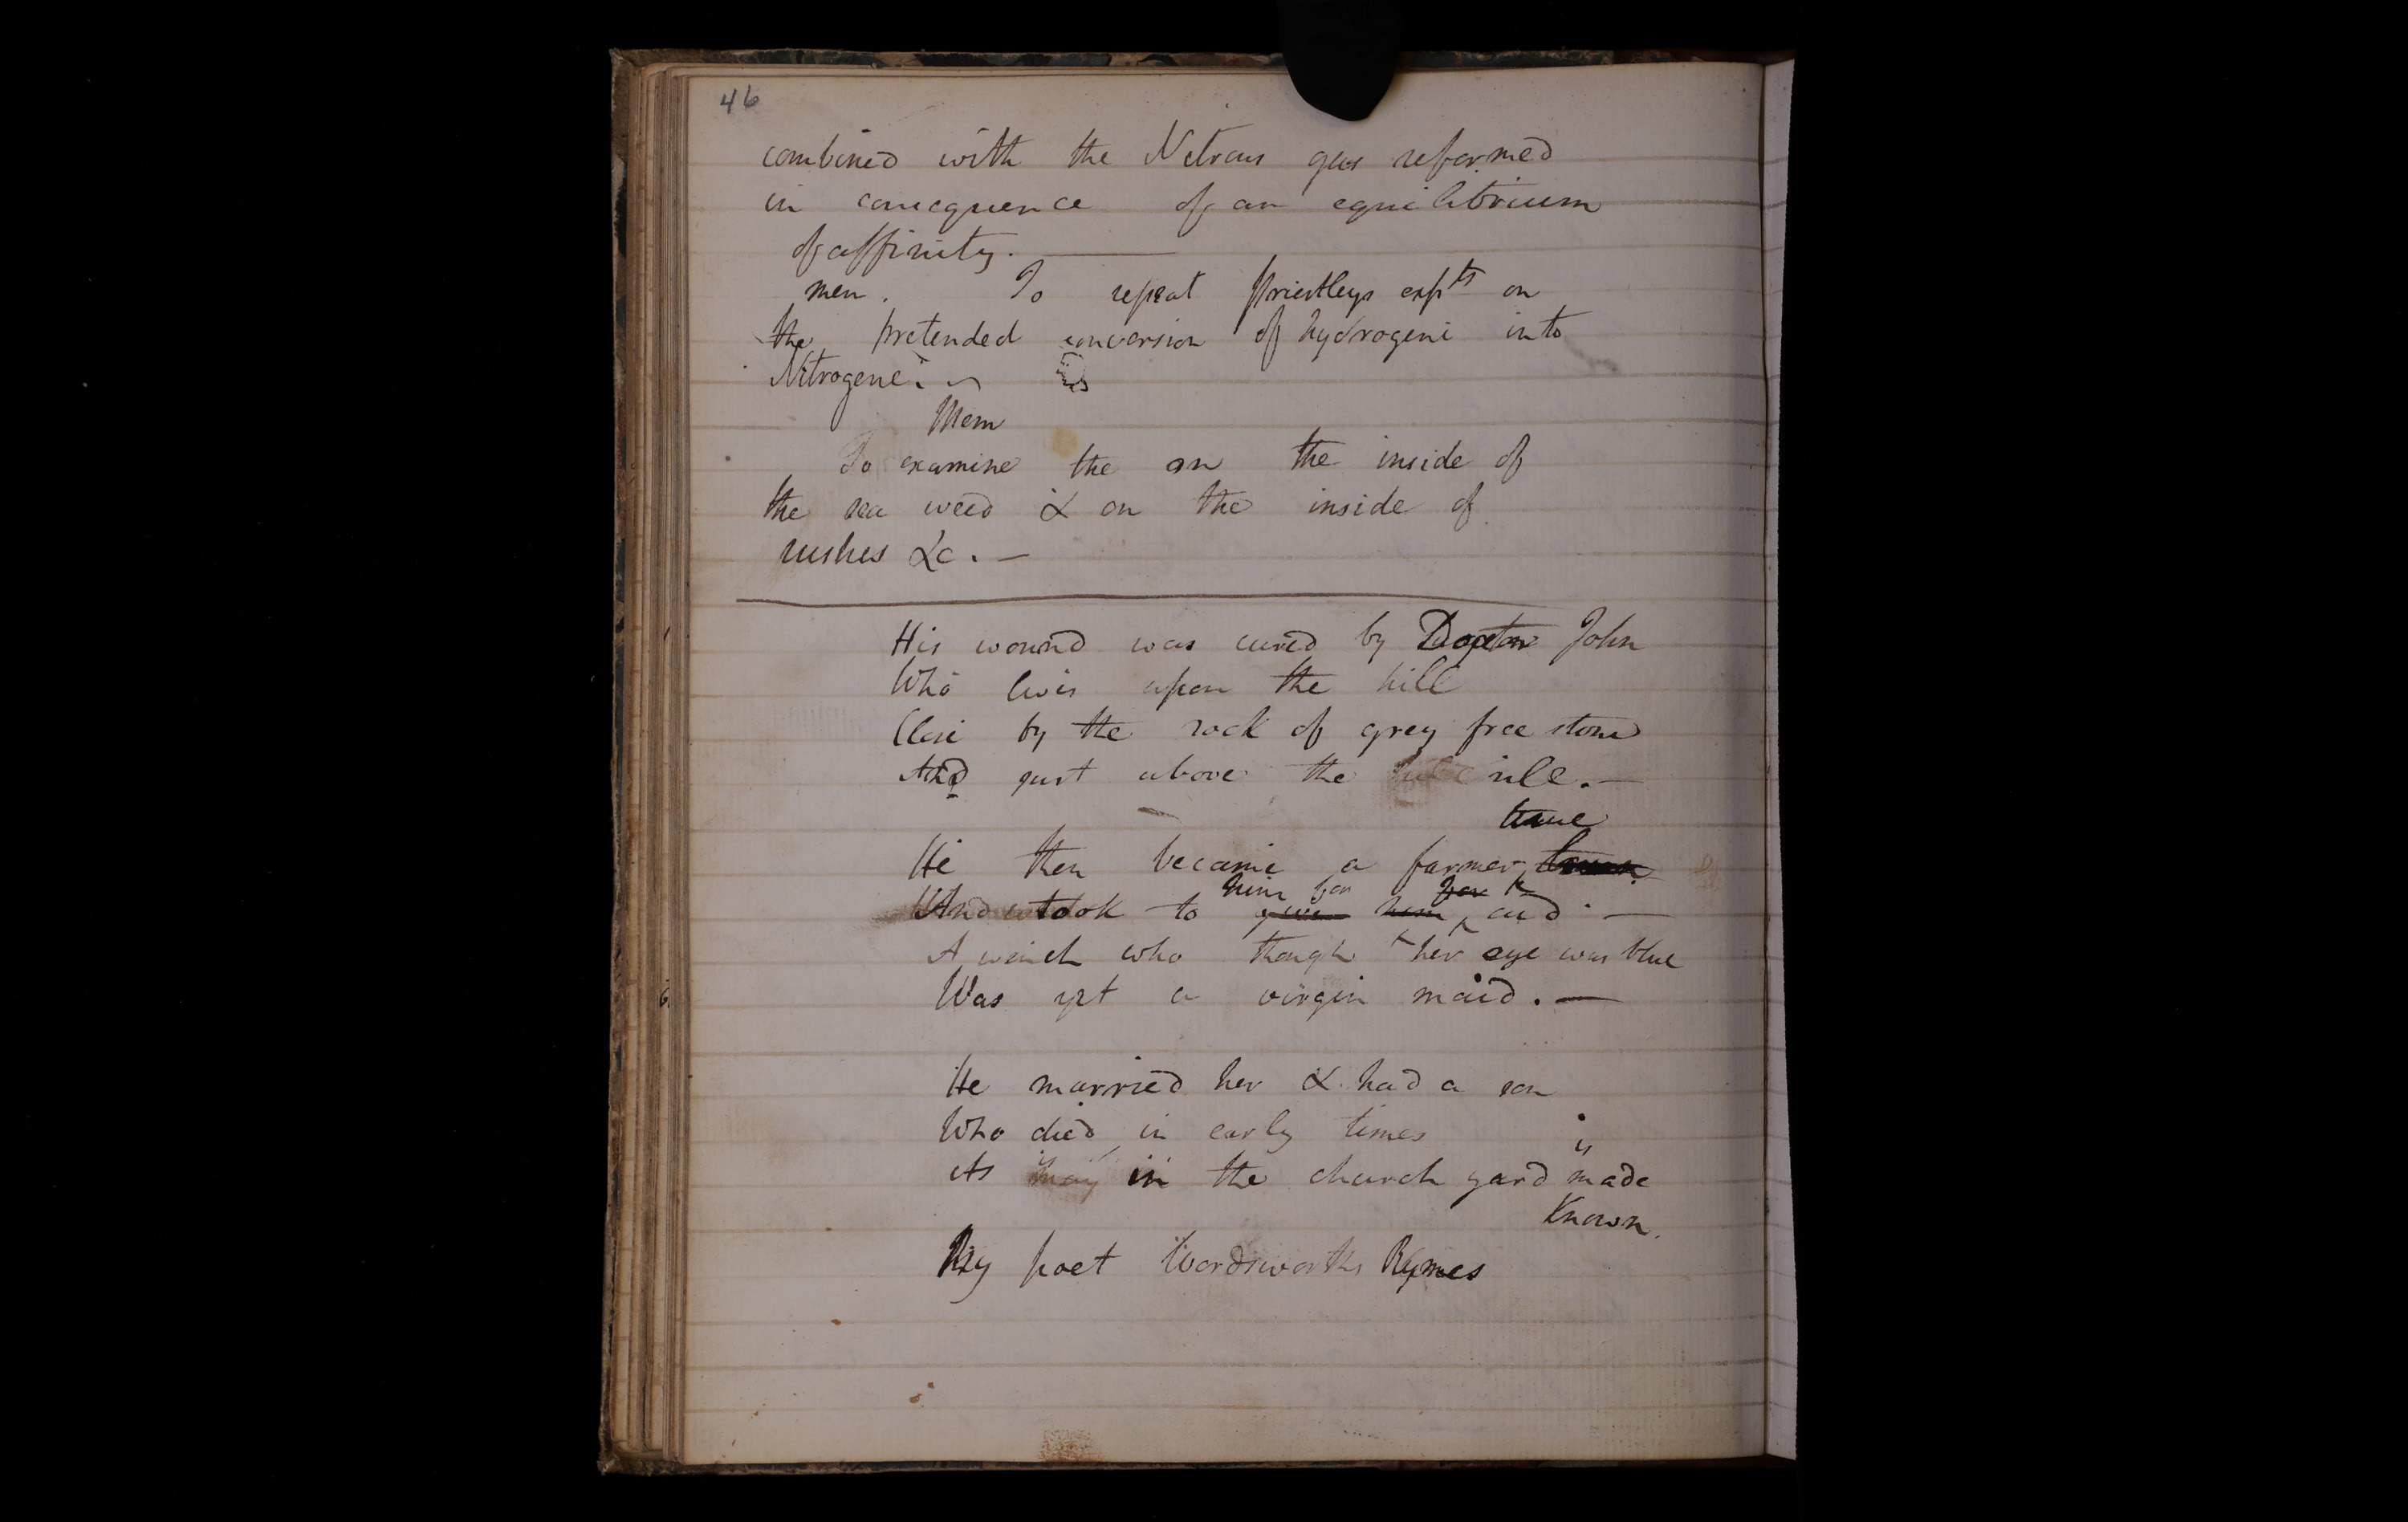 46
combined with the Nitrous gas reformed
in consequence of an equilibrium
of affinity. —
mem. To repeat Priestleys expts on
the pretended conversion of hydrogene into
Nitrogene. 
Mem
To examine the on the inside of
the sea weed & on the inside of
rushes &c. —
His wound was cured by Doctor John
Who lives upon the hill
Close by the rock of grey free stone
And just above the rill. —
true
He then became a farmer
him for
And took to aid —
A wench who though her eye was blue
Was yet a virgin maid. —
He married her & had a son
Who died in early times
is
As in the church yard made
Known.
By poet Wordsworths Rymes